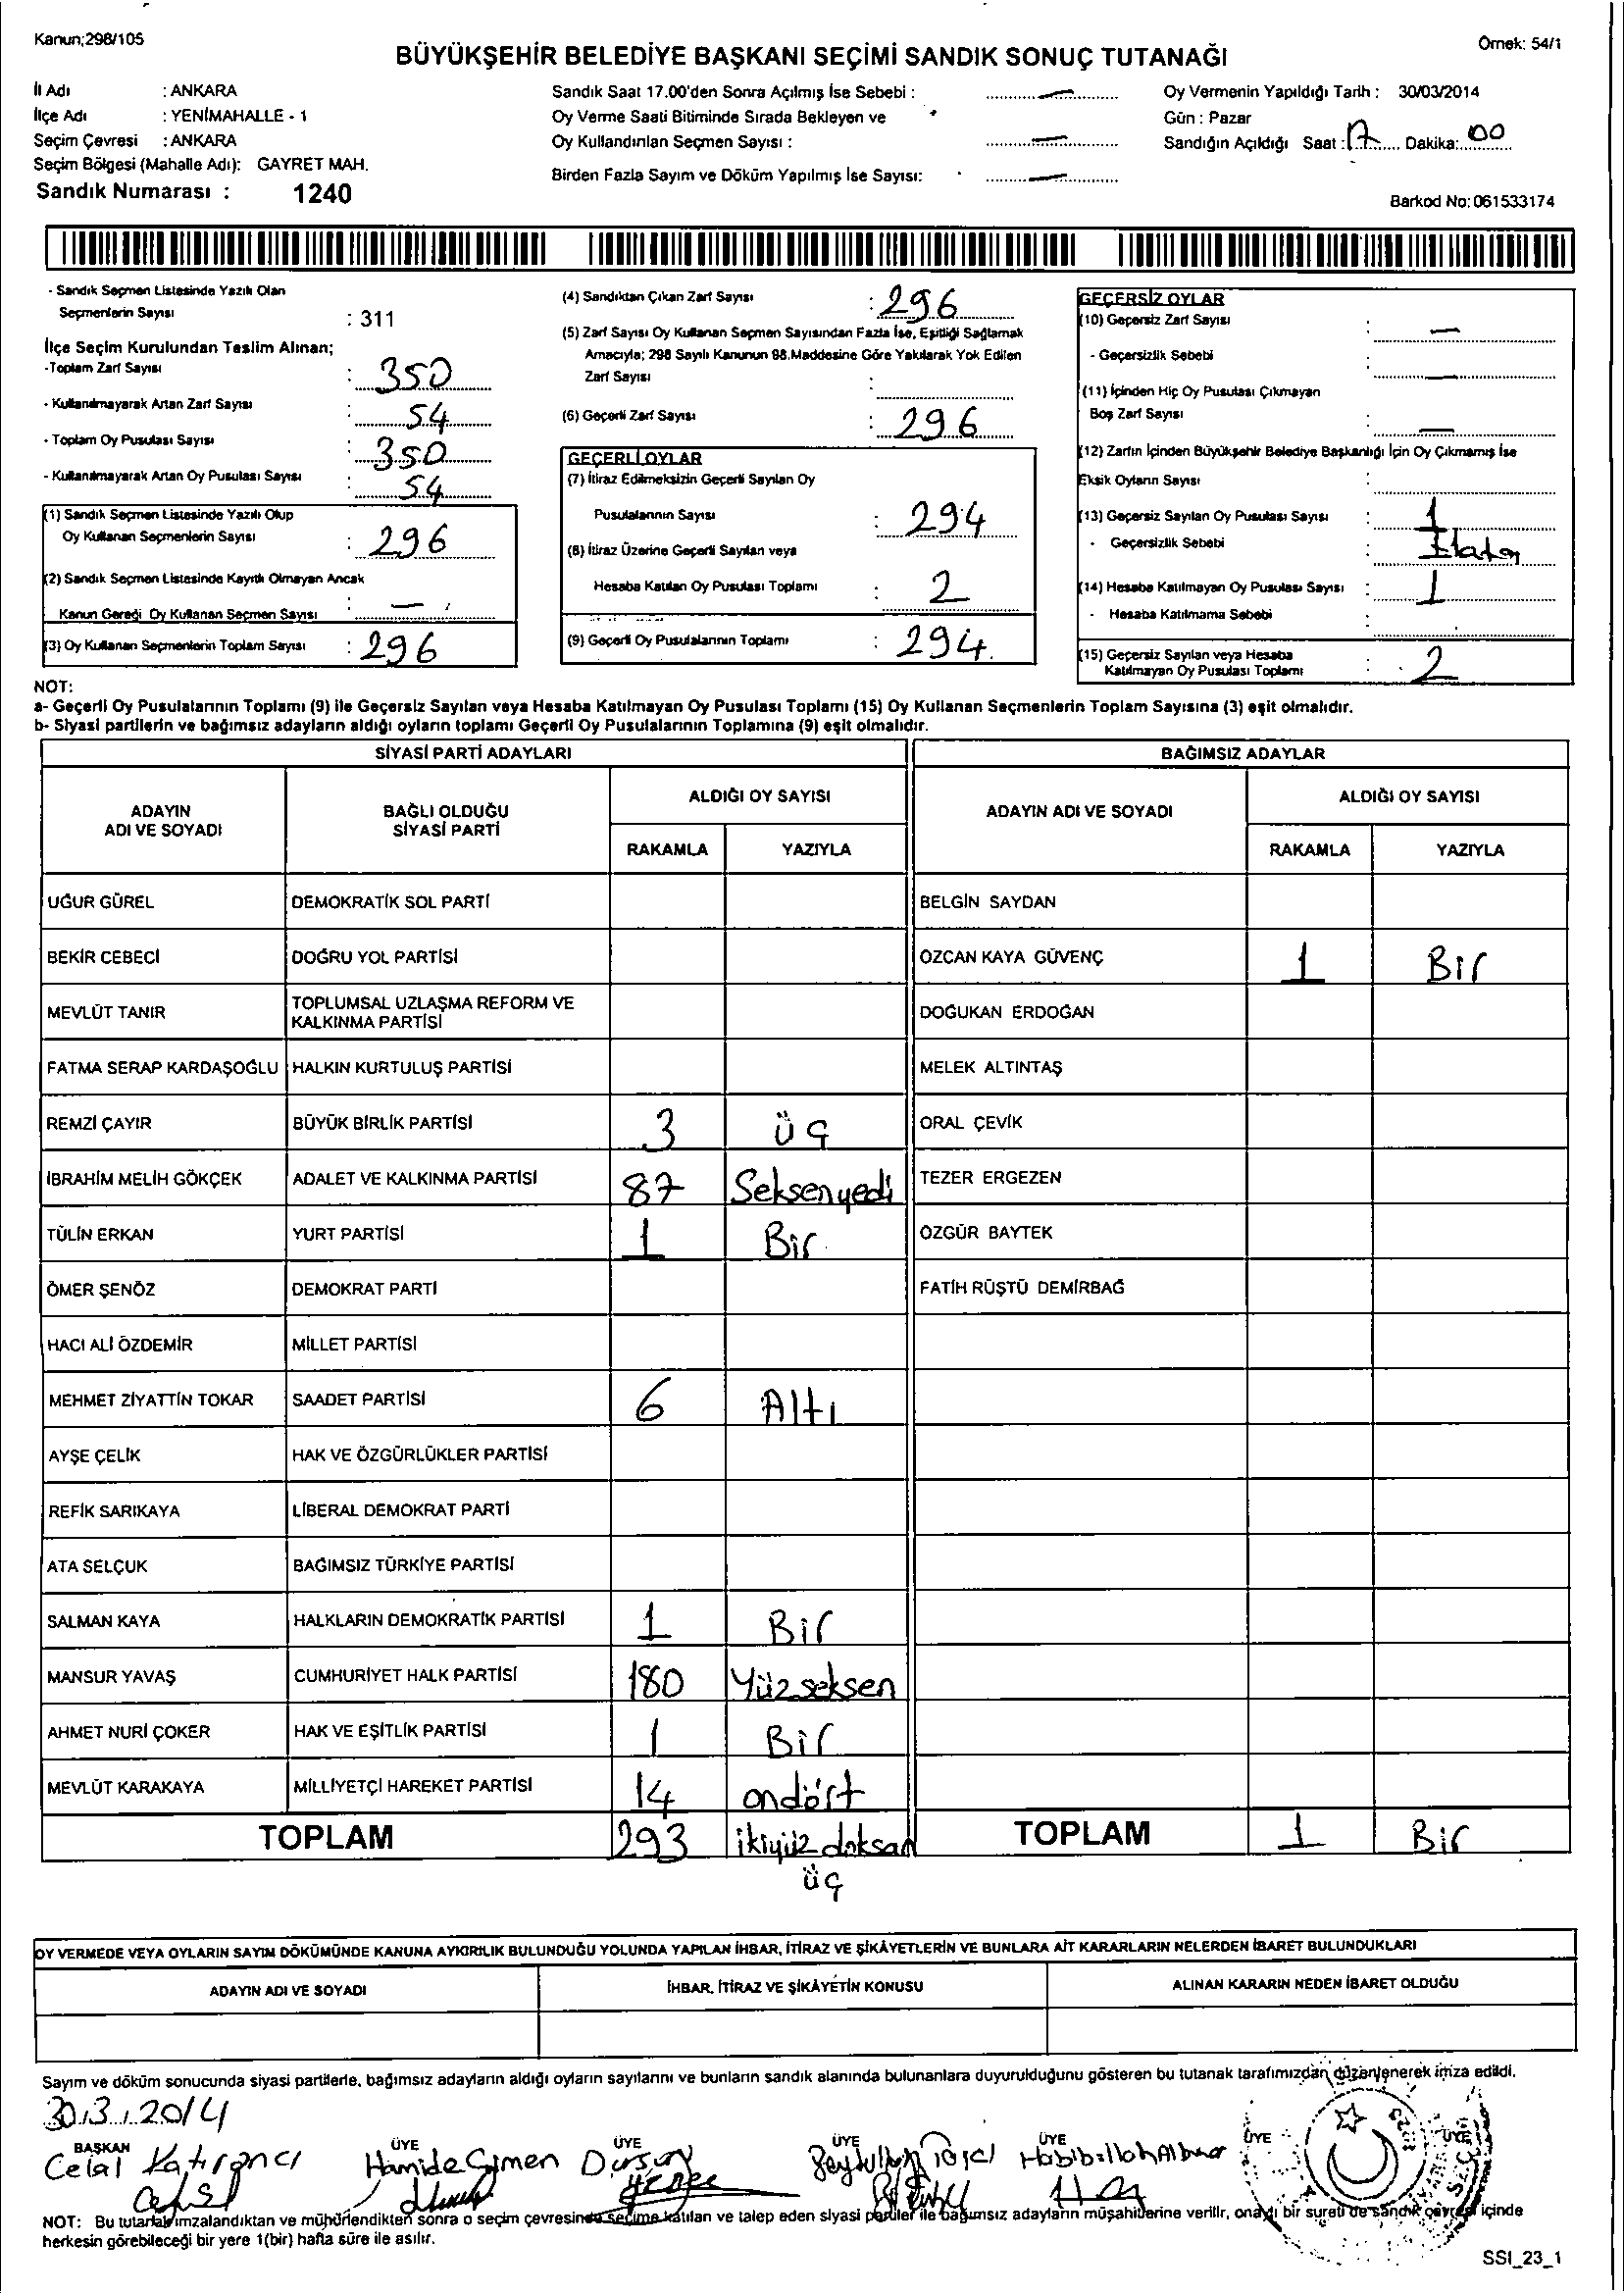 Kanun;298/105
Örnek: 54/1
BÜYÜKŞEHİR BELEDİYE BAŞKANI SEÇİMİ SANDIK SONUÇ TUTANAĞI
İl Adı : ANKARA
İlçe Adı : YENİMAHALLE - 1
Seçim Çevresi : ANKARA
Seçim Bölgesi (Mahalle Adı): GAYRET MAH.
Sandık Numarası : 1240
Sandık Saat 17.00'den Sonra Açılmış İse Sebebi : —
Oy Verme Saati Bitiminde Sırada Bekleyen ve
Oy Kullandırılan Seçmen Sayısı : —
Birden Fazla Sayım ve Döküm Yapılmış İse Sayısı: —
Oy Vermenin Yapıldığı Tarih : 30/03/2014
Gün : Pazar
Sandığın Açıldığı Saat : 17 Dakika: 00
Barkod No: 061533174
- Sandık Seçmen Listesinde Yazılı Olan
Seçmenlerin Sayısı : 311
İlçe Seçim Kurulundan Teslim Alınan;
-Toplam Zarf Sayısı : 350
- Kullanılmayarak Artan Zarf Sayısı : 54
- Toplam Oy Pusulası Sayısı : 350
- Kullanılmayarak Artan Oy Pusulası Sayısı : 54
(1) Sandık Seçmen Listesinde Yazılı Olup
Oy Kullanan Seçmenlerin Sayısı : 296
(2) Sandık Seçmen Listesinde Kayıtlı Olmayan Ancak
Kanun Gereği Oy Kullanan Seçmen Sayısı : —
(3) Oy Kullanan Seçmenlerin Toplam Sayısı : 296
(4) Sandıktan Çıkan Zarf Sayısı : 296
(5) Zarf Sayısı Oy Kullanan Seçmen Sayısından Fazla İse, Eşitliği Sağlamak
Amacıyla; 298 Sayılı Kanunun 98.Maddesine Göre Yakılarak Yok Edilen
Zarf Sayısı :
(6) Geçerli Zarf Sayısı : 296
GEÇERLİ OYLAR
(7) İtiraz Edilmeksizin Geçerli Sayılan Oy
Pusulalarının Sayısı : 294
(8) İtiraz Üzerine Geçerli Sayılan veya
Hesaba Katılan Oy Pusulası Toplamı : 2
(9) Geçerli Oy Pusulalarının Toplamı : 294
GEÇERSİZ OYLAR
(10) Geçersiz Zarf Sayısı : —
- Geçersizlik Sebebi : —
(11) İçinden Hiç Oy Pusulası Çıkmayan
Boş Zarf Sayısı : —
(12) Zarfın İçinden Büyükşehir Belediye Başkanlığı İçin Oy Çıkmamış İse
Eksik Oyların Sayısı :
(13) Geçersiz Sayılan Oy Pusulası Sayısı : 1
- Geçersizlik Sebebi :
(14) Hesaba Katılmayan Oy Pusulası Sayısı : 1
- Hesaba Katılmama Sebebi :
(15) Geçersiz Sayılan veya Hesaba
Katılmayan Oy Pusulası Toplamı : 2
NOT:
a- Geçerli Oy Pusulalarının Toplamı (9) ile Geçersiz Sayılan veya Hesaba Katılmayan Oy Pusulası Toplamı (15) Oy Kullanan Seçmenlerin Toplam Sayısına (3) eşit olmalıdır.
b- Siyasi partilerin ve bağımsız adayların aldığı oyların toplamı Geçerli Oy Pusulalarının Toplamına (9) eşit olmalıdır.
SİYASİ PARTİ ADAYLARI
ADAYIN ADI VE SOYADI
BAĞLI OLDUĞU SİYASİ PARTİ
ALDIĞI OY SAYISI
RAKAMLA YAZIYLA
UĞUR GÜREL DEMOKRATİK SOL PARTİ
BEKİR CEBECİ DOĞRU YOL PARTİSİ
MEVLÜT TANIR TOPLUMSAL UZLAŞMA REFORM VE
KALKINMA PARTİSİ
FATMA SERAP KARDAŞOĞLU HALKIN KURTULUŞ PARTİSİ
REMZİ ÇAYIR BÜYÜK BİRLİK PARTİSİ 3 üç
İBRAHİM MELİH GÖKÇEK ADALET VE KALKINMA PARTİSİ 87 Seksenyedi
TÜLİN ERKAN YURT PARTİSİ 1 Bir
ÖMER ŞENÖZ DEMOKRAT PARTİ
HACI ALİ ÖZDEMİR MİLLET PARTİSİ
MEHMET ZİYATTİN TOKAR SAADET PARTİSİ 6 Altı
AYŞE ÇELİK HAK VE ÖZGÜRLÜKLER PARTİSİ
REFİK SARIKAYA LİBERAL DEMOKRAT PARTİ
ATA SELÇUK BAĞIMSIZ TÜRKİYE PARTİSİ
SALMAN KAYA HALKLARIN DEMOKRATİK PARTİSİ 1 Bir
MANSUR YAVAŞ CUMHURİYET HALK PARTİSİ 180 Yüzseksen
AHMET NURİ ÇOKER HAK VE EŞİTLİK PARTİSİ 1 Bir
MEVLÜT KARAKAYA MİLLİYETÇİ HAREKET PARTİSİ 14 ondört
TOPLAM 293 ikiyüz doksan
üç
BAĞIMSIZ ADAYLAR
ADAYIN ADI VE SOYADI
ALDIĞI OY SAYISI
RAKAMLA YAZIYLA
BELGİN SAYDAN
ÖZCAN KAYA GÜVENÇ 1 Bir
DOĞUKAN ERDOĞAN
MELEK ALTINTAŞ
ORAL ÇEVİK
TEZER ERGEZEN
ÖZGÜR BAYTEK
FATİH RÜŞTÜ DEMİRBAĞ
TOPLAM 1 Bir
OY VERMEDE VEYA OYLARIN SAYIM DÖKÜMÜNDE KANUNA AYKIRILIK BULUNDUĞU YOLUNDA YAPILAN İHBAR, İTİRAZ VE ŞİKÂYETLERİN VE BUNLARA AİT KARARLARIN NELERDEN İBARET BULUNDUKLARI
ADAYIN ADI VE SOYADI İHBAR, İTİRAZ VE ŞİKÂYETİN KONUSU ALINAN KARARIN NEDEN İBARET OLDUĞU
Sayım ve döküm sonucunda siyasi partilerle, bağımsız adayların aldığı oyların sayılarını ve bunların sandık alanında bulunanlara duyurulduğunu gösteren bu tutanak tarafımızdan düzenlenerek imza edildi.
30.3.2014
BAŞKAN ÜYE ÜYE ÜYE ÜYE ÜYE ÜYE
Celal Katırancı Hamide Çimen Dursun
NOT: Bu tutanak imzalandıktan ve mühürlendikten sonra o seçim çevresinde seçime katılan ve talep eden siyasi partiler ile bağımsız adayların müşahitlerine verilir, onaylı bir sureti de sandık çevresi içinde
herkesin görebileceği bir yere 1(bir) hafta süre ile asılır.
SSI_23_1